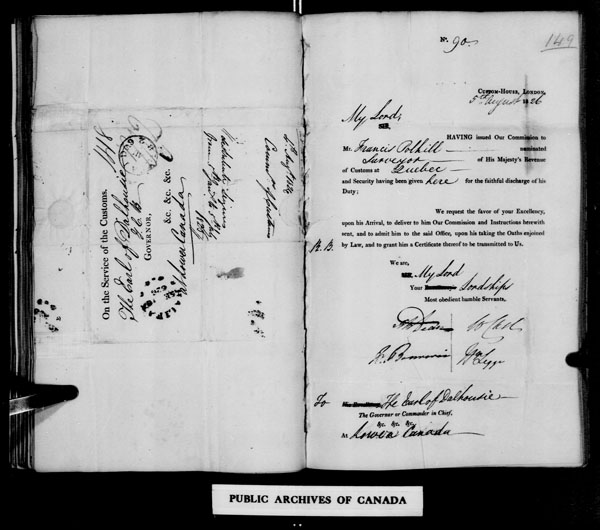 On the Service of the Customs.
The Earl of Dalhousie
G.C.B.
GOVERNOR,
&c. &c. &c.
Lower Canada
148
HALIFAX
No. 90.
149
CUSTOM-HOUSE, LONDON,
5th August 1826
My Lord,
SIR,
HAVING issued Our Commission to
Mr. Francis Polhill nominated
Surveyor of His Majesty's Revenue
of Customs at Quebec
and Security having been given here for the faithful discharge of
his Duty;
We request the favor of your Excellency,
upon his Arrival, to deliver to him Our Commission and Instructions herewith
sent, and to admit him to the said Office, upon his taking the Oaths enjoined
by Law, and to grant him a Certificate thereof to be transmitted to Us.
We are,
SIR, My Lord
Your Lordships
Most obedient humble Servants,
To The Earl of Dalhousie
The Governor or Commander in Chief,
&c. &c. &c.
At Lower Canada
PUBLIC ARCHIVES OF CANADA